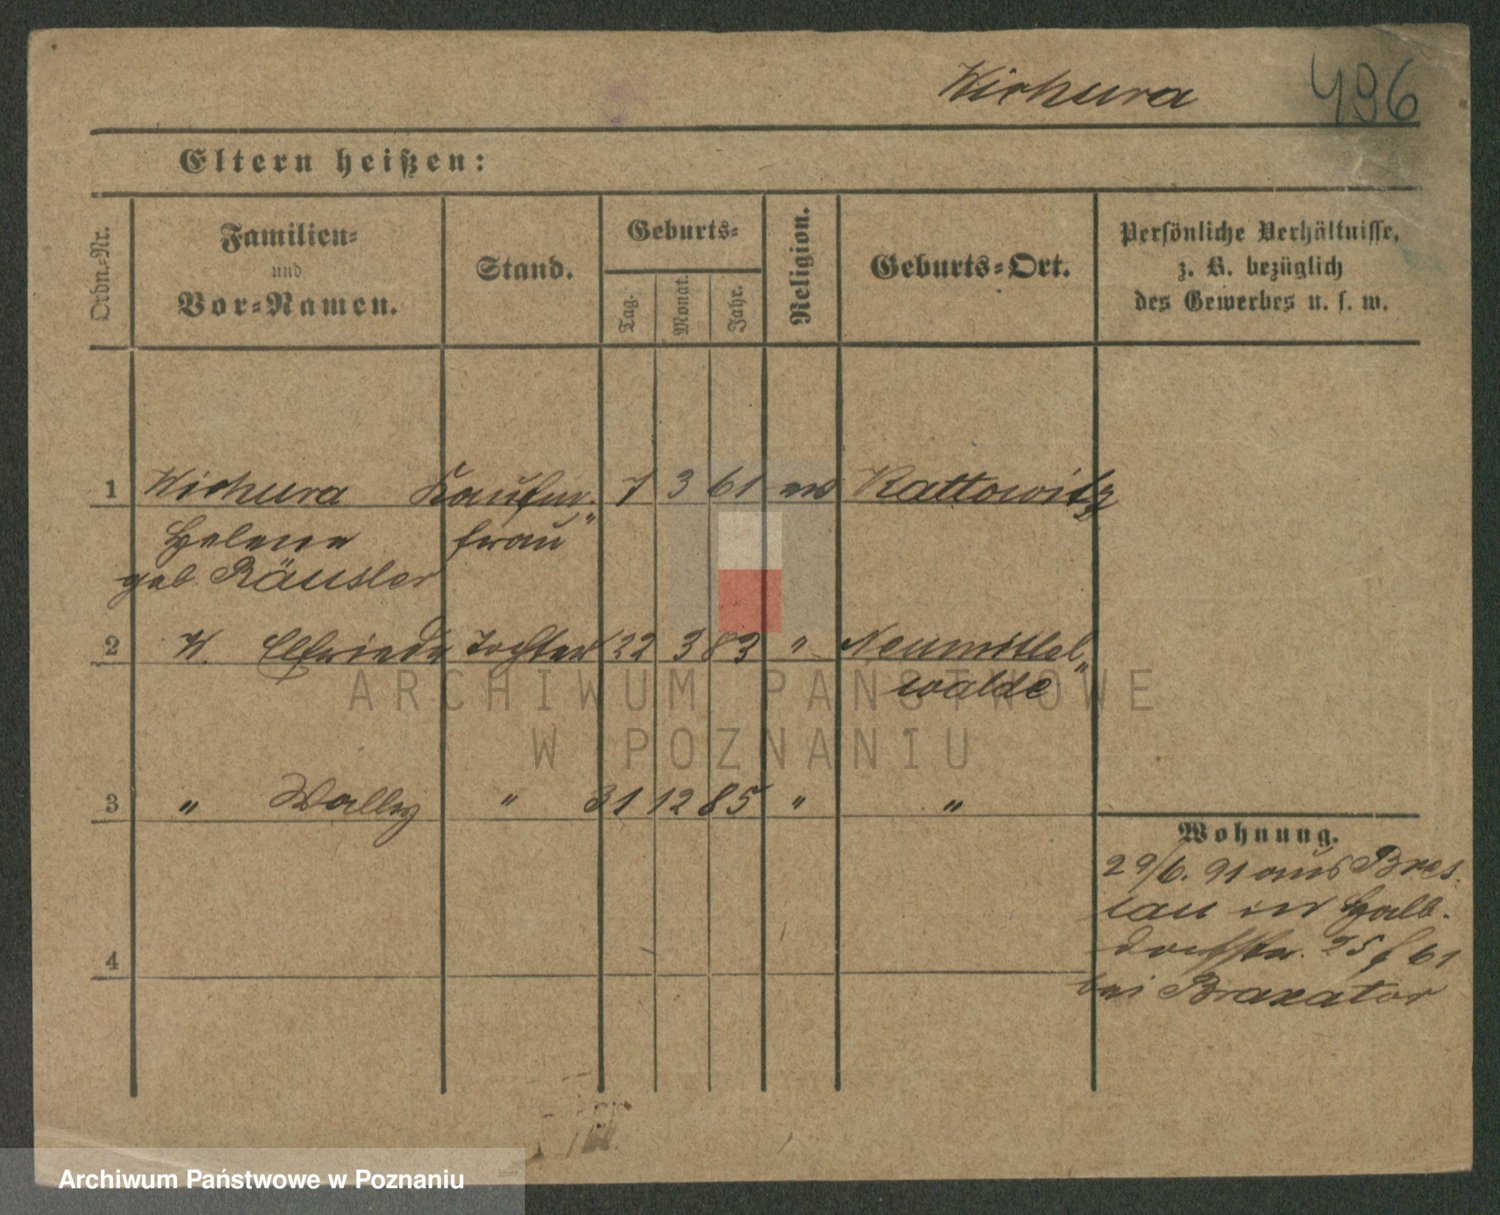 Wichura 496
Eltern heißen:
Ordn.-Nr.
Familien-
und
Vor-Namen.
Stand.
Geburts-
Tag.
Monat.
Jahr.
Religion.
Geburts-Ort.
Persönliche Verhältnisse,
z. B. bezüglich
des Gewerbes u. s. w.
1 Wichura Kaufm. 7 3 61 ev Kattowitz
Helene frau
geb. Räusler
2 W. Elfriede Tochter 22 3 83 " Neumittel
walde
3 " Wally " 31 12 85 " "
4
Wohnung.
29/6. 91 aus Bres-
lau in Halb-
dorfstr. 25 f 61
bei Braxator
ARCHIWUM PAŃSTWOWE
W POZNANIU
Archiwum Państwowe w Poznaniu